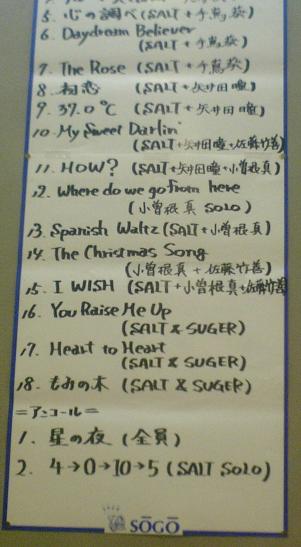 5. 心の調べ (SALT + 手嶌葵)
6. Daydream Believer
(SALT + 手嶌葵)
7. The Rose (SALT + 手嶌葵)
8. 初恋 (SALT + 矢井田瞳)
9. 37.0℃ (SALT + 矢井田瞳)
10. My Sweet Darlin'
(SALT+矢井田瞳+佐藤竹善)
11. HOW? (SALT+矢井田瞳+小曽根真)
12. Where do we go from here
(小曽根真 SOLO)
13. Spanish Waltz (SALT+小曽根真)
14. The Christmas Song
(小曽根真 + 佐藤竹善)
15. I WISH (SALT+小曽根真+佐藤竹善)
16. You Raise Me Up
(SALT & SUGER)
17. Heart to Heart
(SALT & SUGER)
18. もみの木 (SALT & SUGER)
=アンコール=
1. 星の夜 (全員)
2. 4→0→10→5 (SALT SOLO)
SOGO